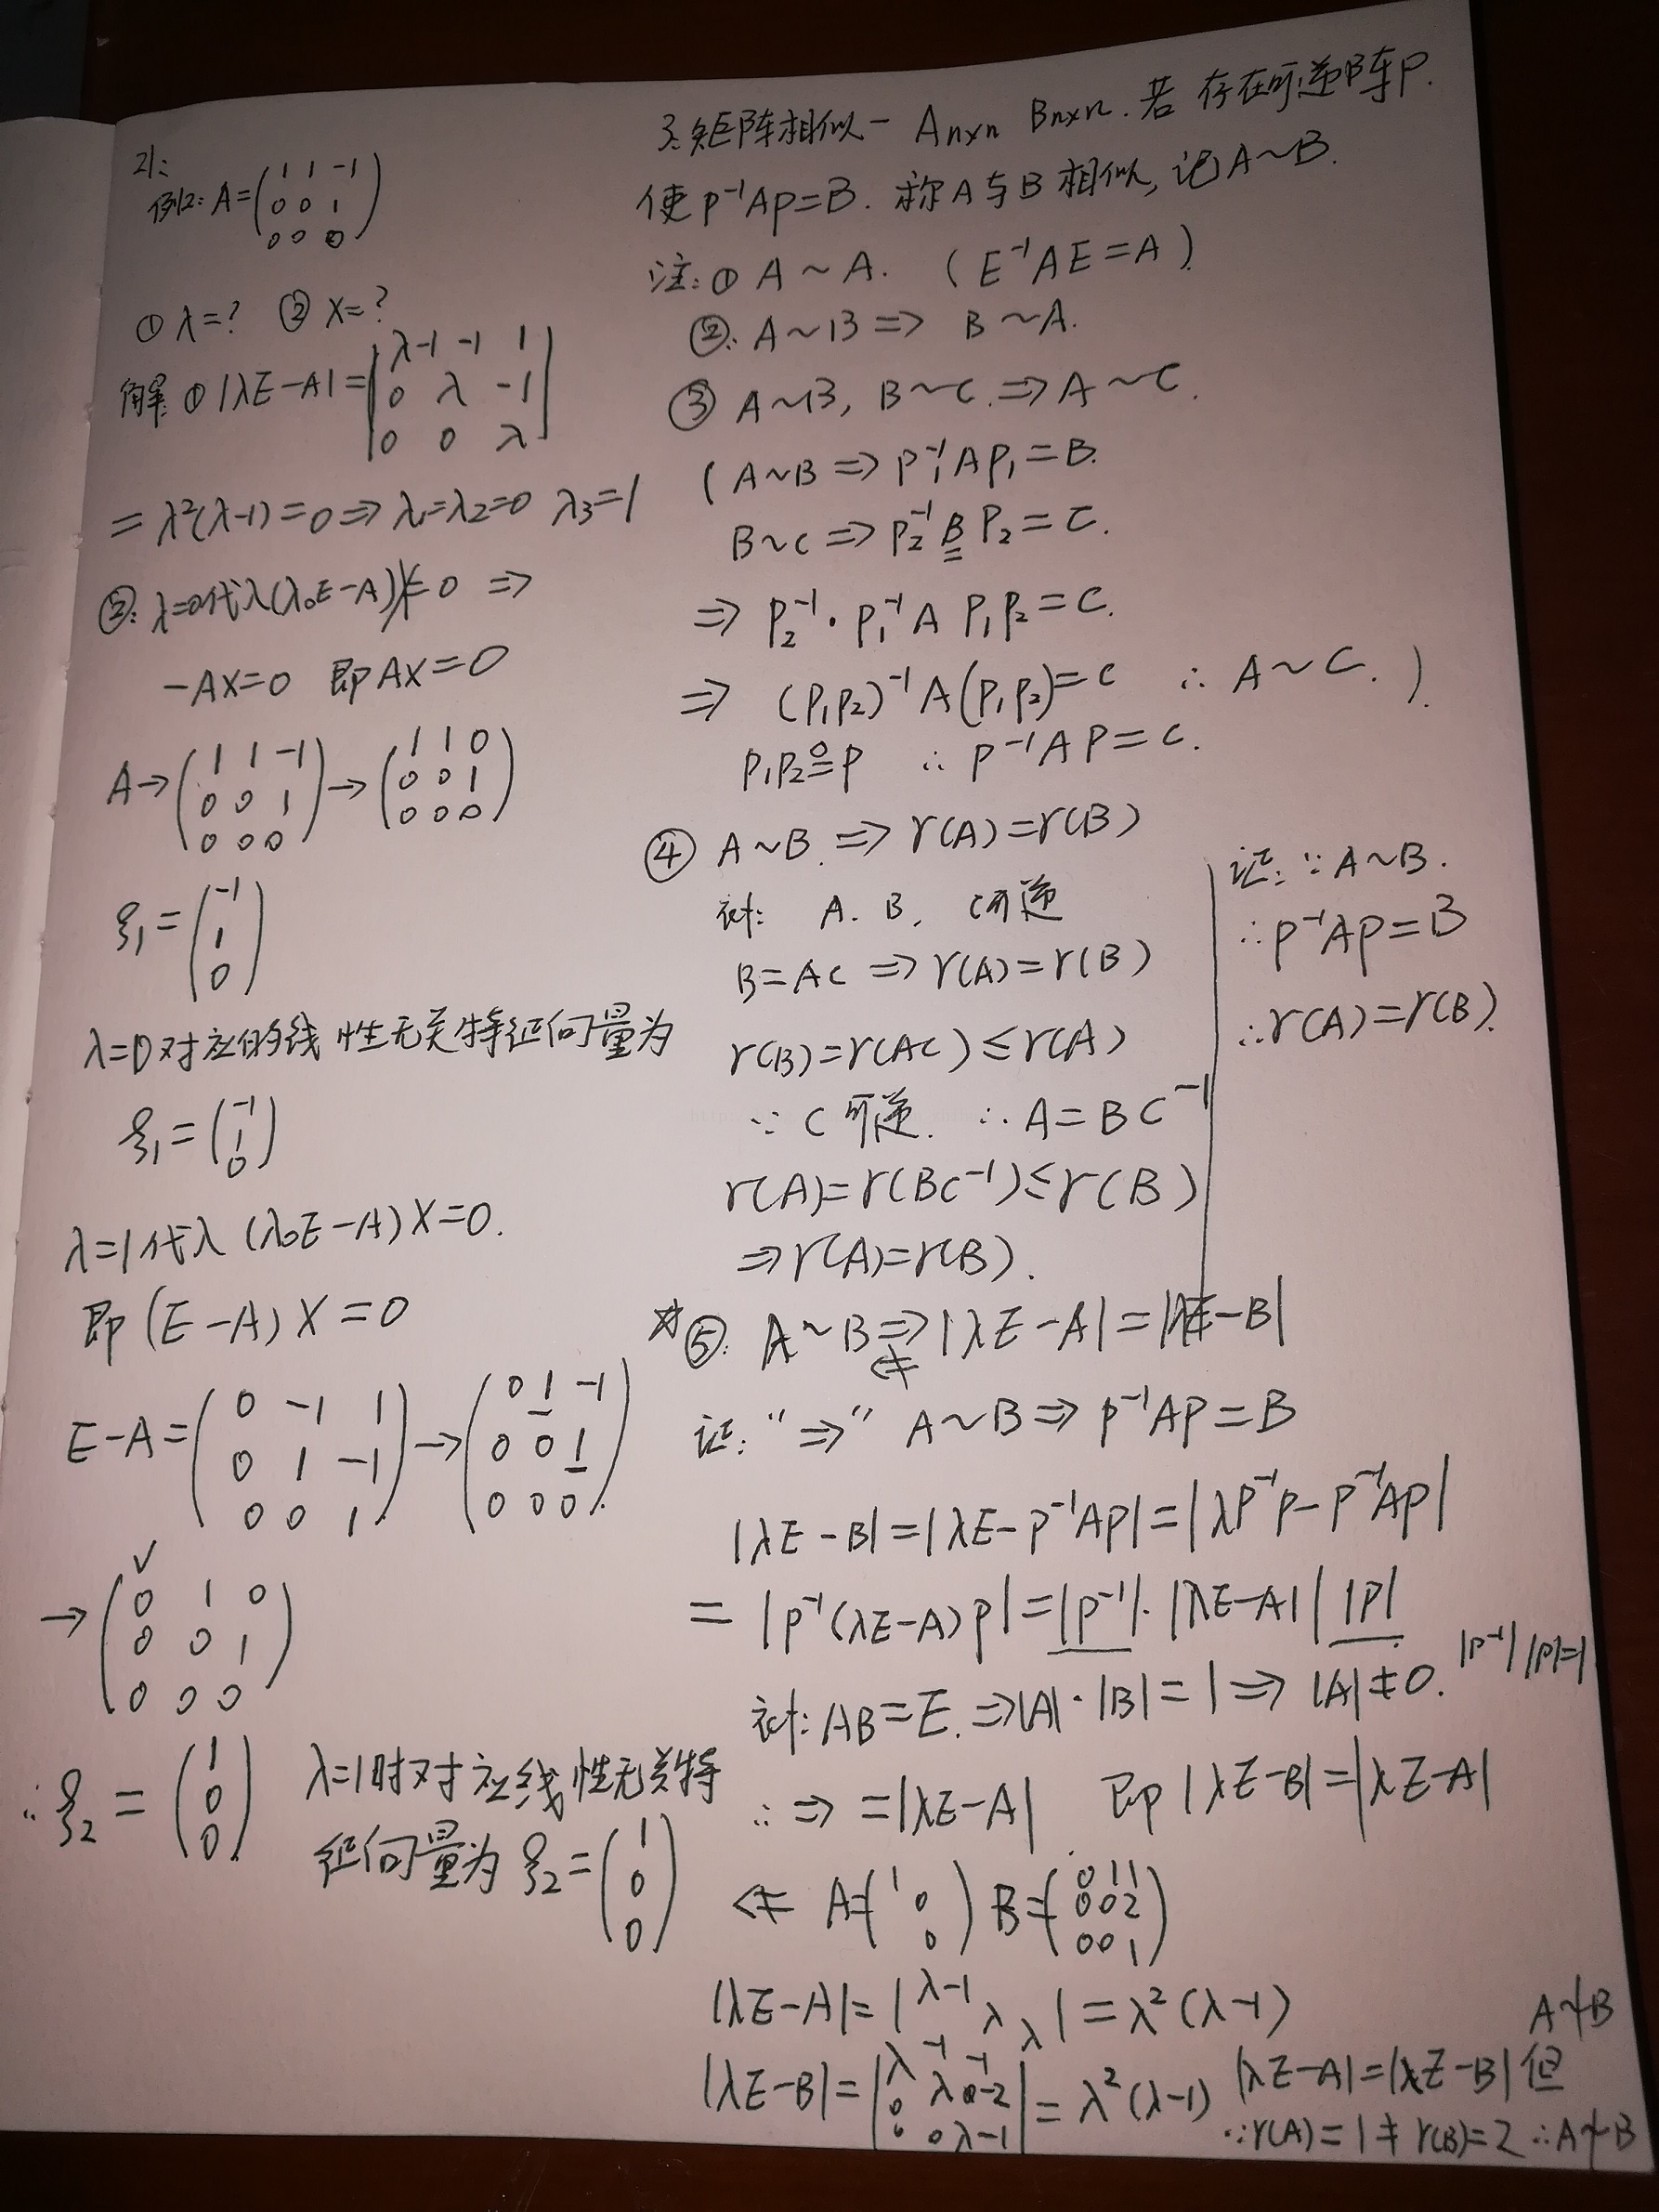 21:
例2: A=(1 1 -1
0 0 1
0 0 0)
① λ=? ② X=?
解: ① |λE-A|=|λ-1 -1 1
0 λ -1
0 0 λ|
=λ²(λ-1)=0⇒λ₁=λ₂=0 λ₃=1
②: λ=0代入(λ₀E-A)X=0 ⇒
-AX=0 即AX=0
A→(1 1 -1
0 0 1
0 0 0)→(1 1 0
0 0 1
0 0 0)
ξ₁=(-1
1
0)
λ=0对应的线性无关特征向量为
ξ₁=(-1
1
0)
λ=1代入(λ₀E-A)X=0.
即(E-A)X=0
E-A=(0 -1 1
0 1 -1
0 0 1)→(0 1 -1
0 0 1
0 0 0)
→(0 1 0
0 0 1
0 0 0)
∴ξ₂=(1
0
0)
λ=1时对应线性无关特
征向量为ξ₂=(1
0
0)
3.矩阵相似- Aₙₓₙ Bₙₓₙ.若存在可逆阵P.
使P⁻¹AP=B. 称A与B相似,记A~B.
注:① A~A. (E⁻¹AE=A)
②: A~B⇒ B~A.
③ A~B, B~C.⇒A~C.
(A~B⇒P₁⁻¹AP₁=B.
B~C⇒P₂⁻¹BP₂=C.
⇒ P₂⁻¹·P₁⁻¹A P₁P₂=C.
⇒ (P₁P₂)⁻¹A(P₁P₂)=C ∴A~C.)
P₁P₂≗P ∴P⁻¹AP=C.
④ A~B.⇒r(A)=r(B)
A. B, C可逆
B=AC⇒r(A)=r(B)
r(B)=r(AC)≤r(A)
∵C可逆. ∴A=BC⁻¹
r(A)=r(BC⁻¹)≤r(B)
⇒r(A)=r(B).
证:∵A~B.
∴P⁻¹AP=B
∴r(A)=r(B).
☆⑤: A~B⇒|λE-A|=|λE-B|
⇍
证:"⇒" A~B⇒P⁻¹AP=B
|λE-B|=|λE-P⁻¹AP|=|λP⁻¹P-P⁻¹AP|
=|P⁻¹(λE-A)P|=|P⁻¹|·|λE-A||P|
AB=E.⇒|A|·|B|=1⇒|A|≠0. |P⁻¹||P|=1
∴⇒=|λE-A| 即|λE-B|=|λE-A|
⇍ A=(1
0
0) B=(0 1 1
0 0 2
0 0 1)
|λE-A|=|λ-1
λ
λ|=λ²(λ-1)
A≁B
|λE-B|=|λ -1 -1
0 λ -2
0 0 λ-1|=λ²(λ-1) |λE-A|=|λE-B|但
∵r(A)=1≠r(B)=2 ∴A≁B